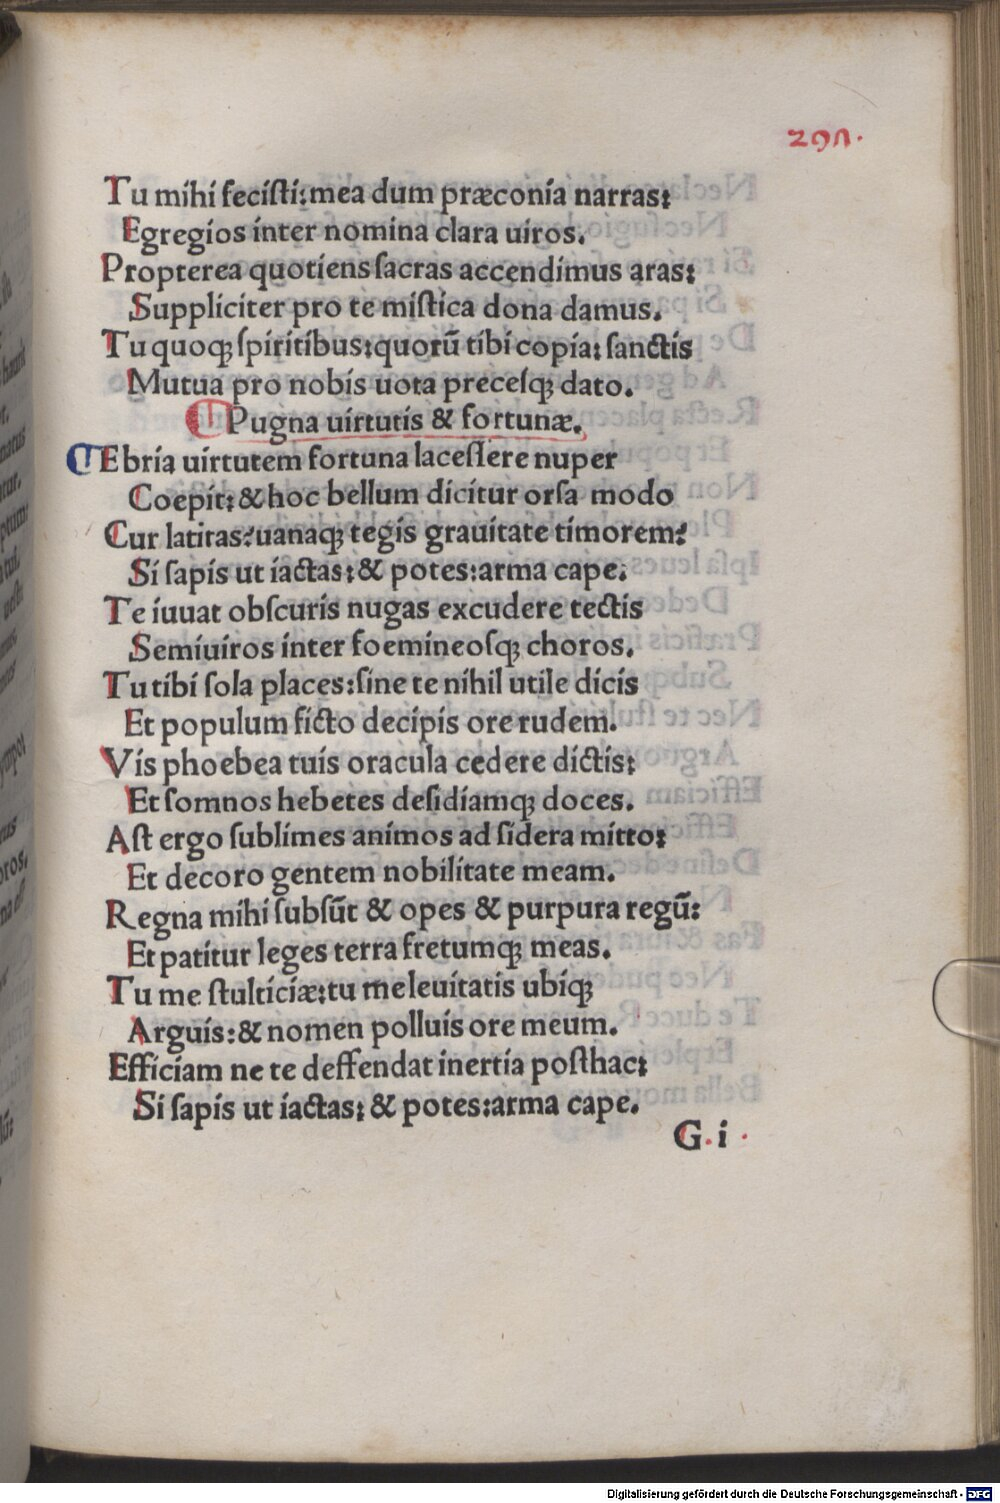 297.
Tu mihi feciſti: mea dum præconia narras:
Egregios inter nomina clara uiros.
Propterea quotiens ſacras accendimus aras:
Suppliciter pro te miſtica dona damus.
Tu quoqꝫ ſpiritibus: quorū tibi copia: ſanctis
Mutua pro nobis uota preceſqꝫ dato.
Pugna uirtutis & fortunæ.
Ebria uirtutem fortuna laceſſere nuper
Coepit: & hoc bellum dicitur orſa modo
Cur latitas? uanaqꝫ tegis grauitate timorem?
Si ſapis ut iactas: & potes: arma cape.
Te iuuat obſcuris nugas excudere tectis
Semiuiros inter foemineoſqꝫ choros.
Tu tibi ſola places: ſine te nihil utile dicis
Et populum ficto decipis ore rudem.
Vis phoebea tuis oracula cedere dictis:
Et ſomnos hebetes deſidiamqꝫ doces.
Aſt ergo ſublimes animos ad ſidera mitto:
Et decoro gentem nobilitate meam.
Regna mihi ſubſūt & opes & purpura regū:
Et patitur leges terra fretumqꝫ meas.
Tu me ſtulticiæ: tu me leuitatis ubiqꝫ
Arguis: & nomen polluis ore meum.
Efficiam ne te deffendat inertia poſthac:
Si ſapis ut iactas: & potes: arma cape.
G. i .
Digitalisierung gefördert durch die Deutsche Forschungsgemeinschaft - DFG